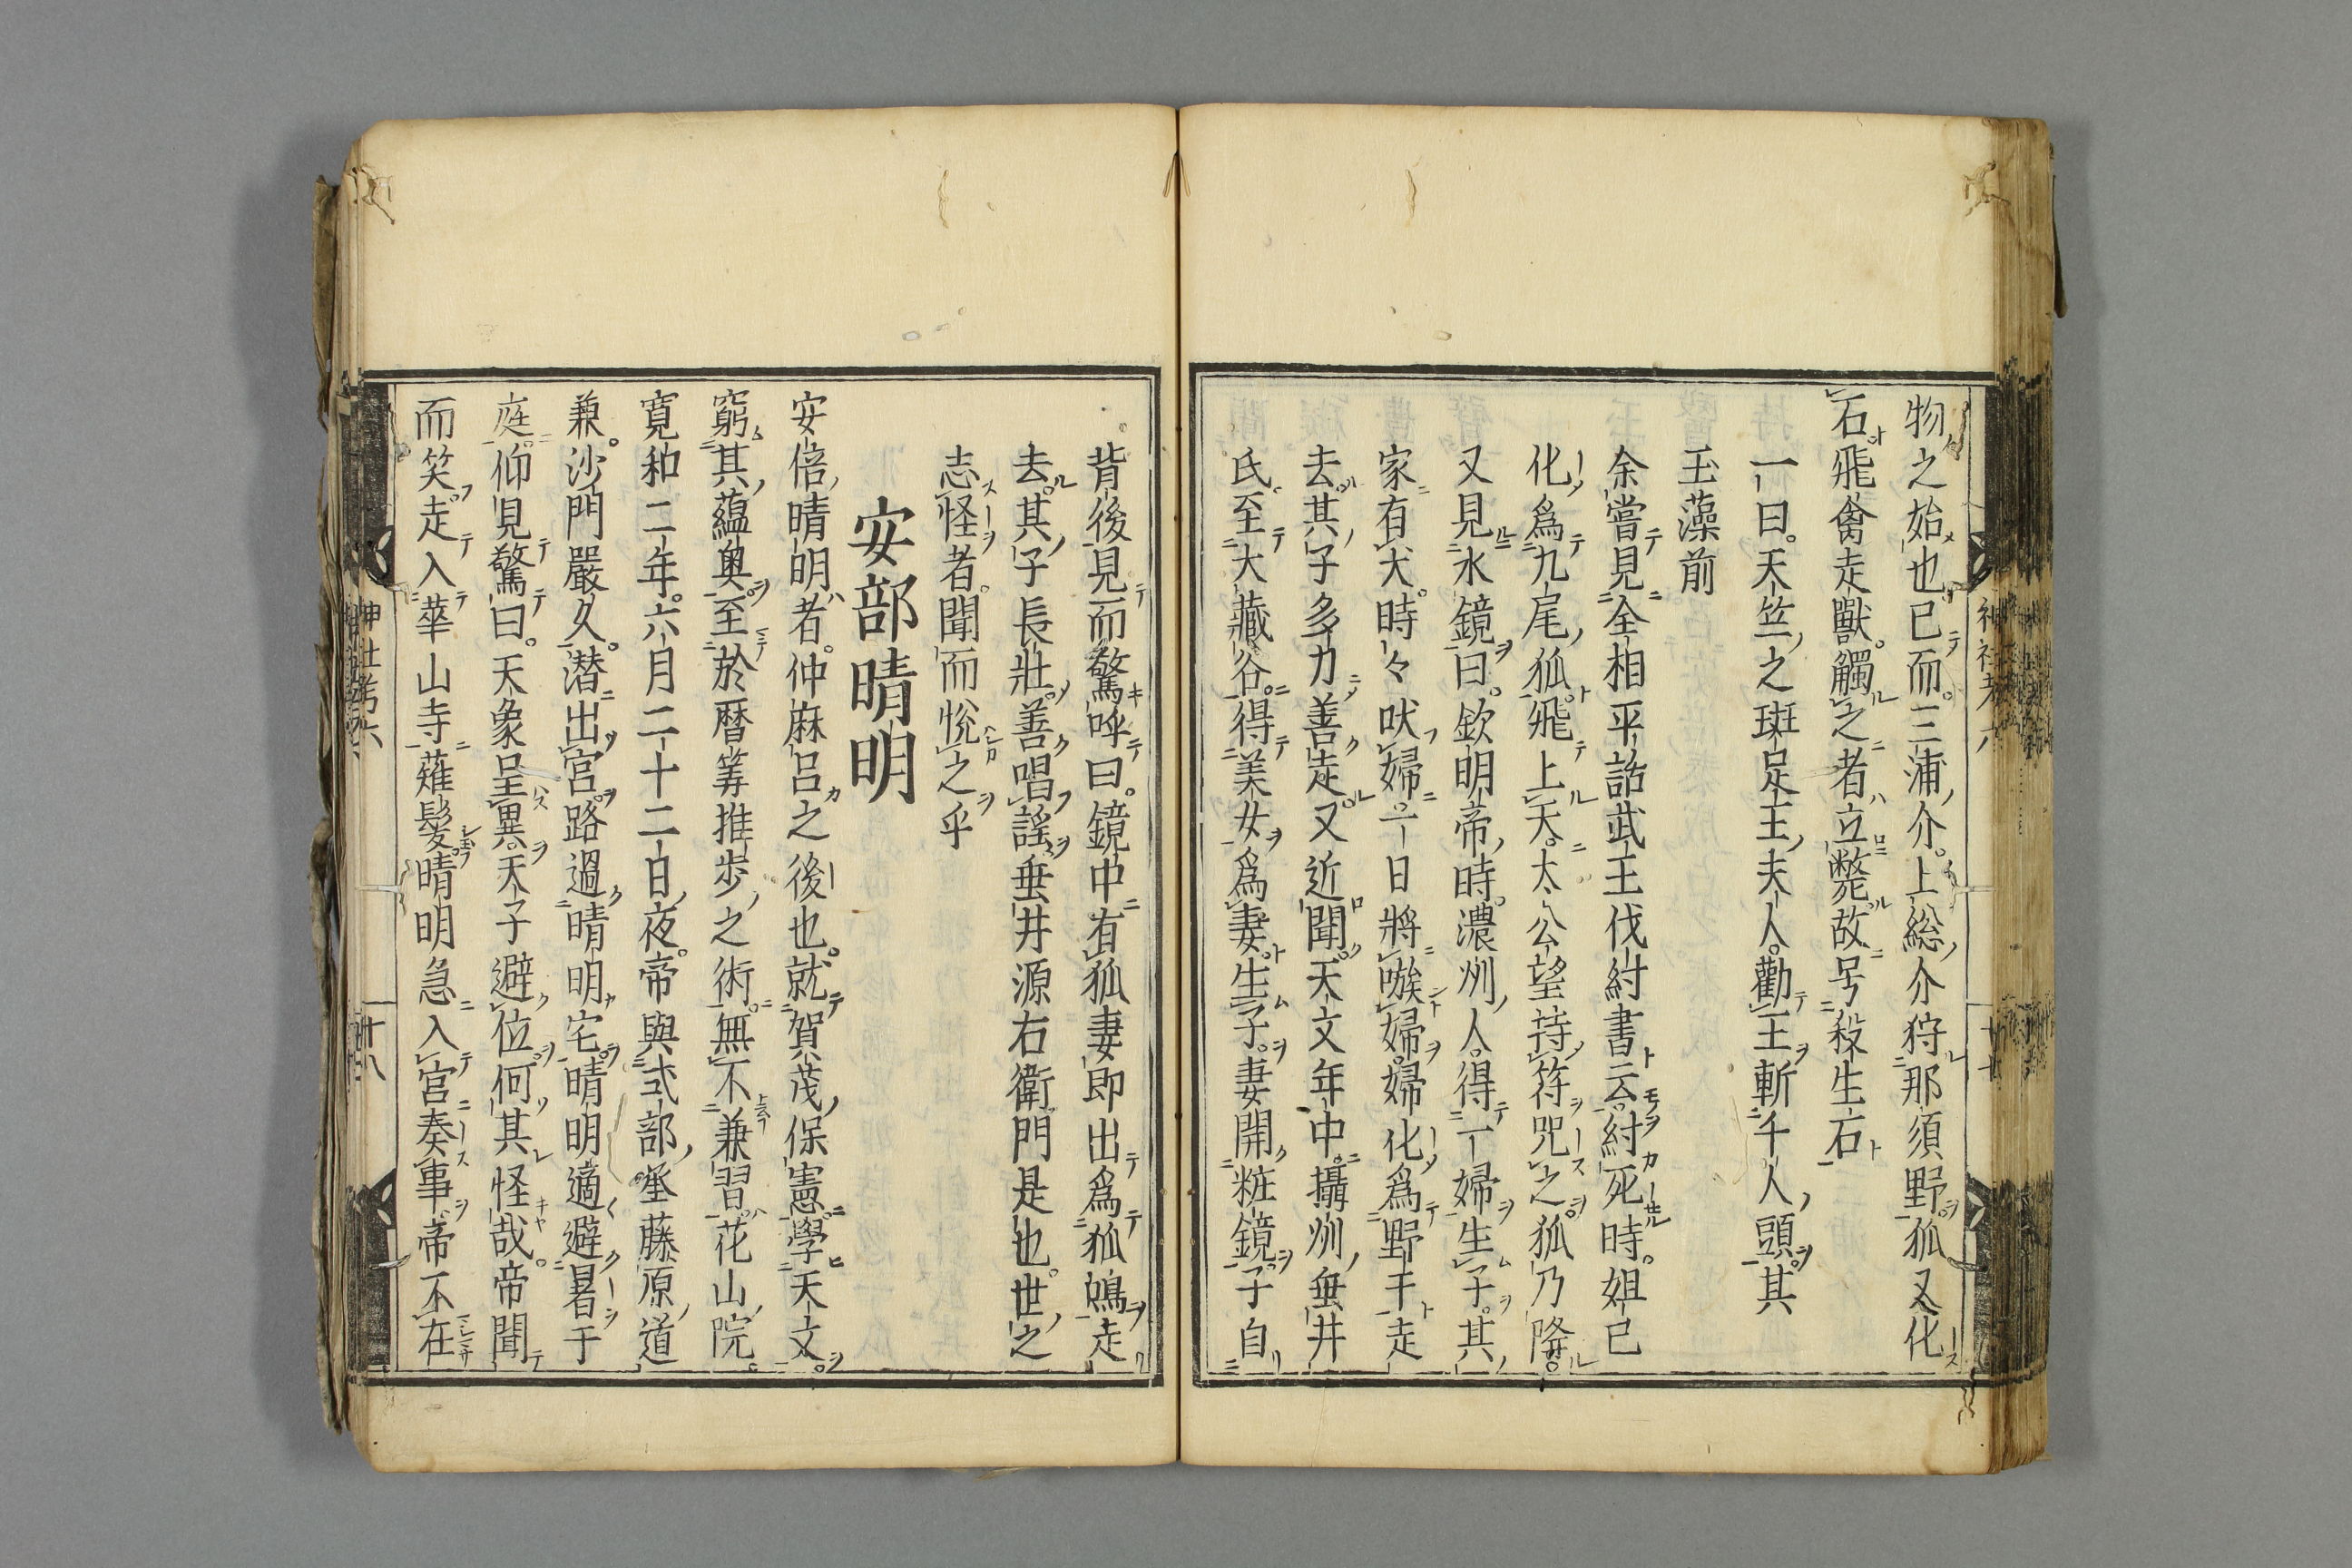 物之始也已而三浦介上総介狩那須野狐又化
石飛禽走獣觸之者立斃故号殺生石
一曰天竺之斑足王夫人勸王斬千人頭其
玉藻前
余嘗見全相平話武王伐紂書云紂死時妲己
化爲九尾狐飛上天太公望持符咒之狐乃降
又見水鏡曰欽明帝時濃州人得一婦生子其
家有犬時々吠婦一日將噬婦婦化爲野干走
去其子多力善走又近聞天文年中攝州垂井
氏至大藏谷得美女爲妻生子妻開粧鏡子自
背後見而驚呼曰鏡中有狐妻即出爲狐鳴走
去其子長壯善唱謡垂井源右衛門是也世之
志怪者聞而悅之乎
安部晴明
安倍晴明者仲麻呂之後也就賀茂保憲學天文
窮其蘊奥至於暦筭推歩之術無不兼習花山院
寛和二年六月二十二日夜帝與式部丞藤原道
兼沙門嚴久潜出宮路過晴明宅晴明適避暑于
庭仰見驚曰天象呈異天子避位何其怪哉帝聞
而笑走入華山寺薙髮晴明急入宮奏事帝不在
神社考六
十七
神社考六
十八